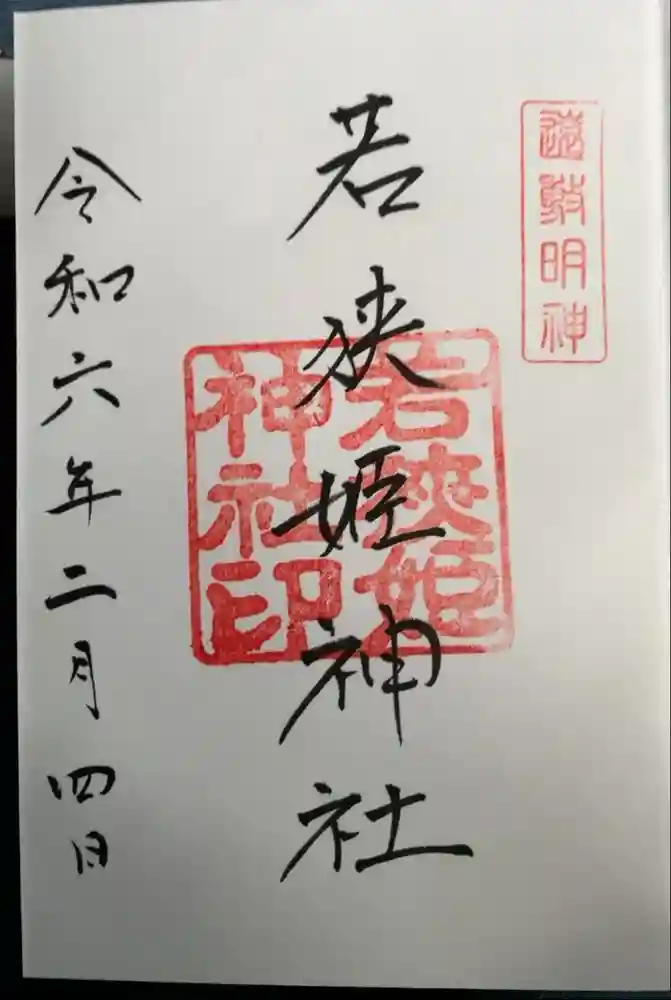 遠敷明神
若狭姫神社
若狭姫神社印
令和六年二月四日